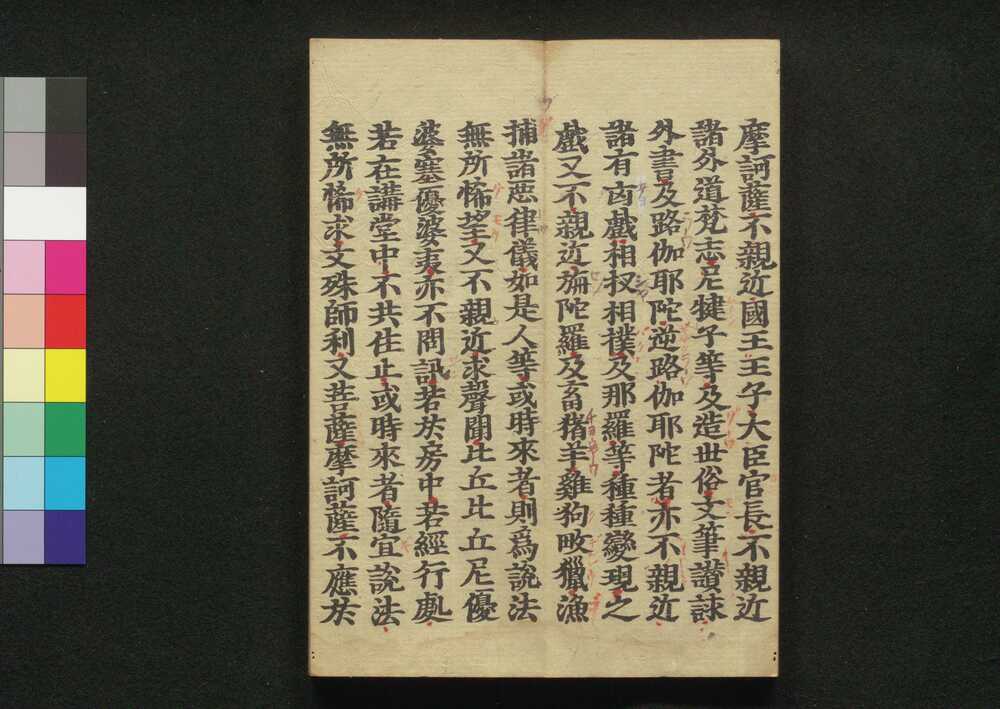 摩訶薩不親近國王王子大臣官長不親近
諸外道梵志尼犍子等及造世俗文筆讃詠
外書及路伽耶陀逆路伽耶陀者亦不親近
諸有凶戲相扠相撲及那羅等種種變現之
戲又不親近旃陀羅及畜猪羊雞狗畋獵漁
捕諸惡律儀如是人等或時來者則爲說法
無所悕望又不親近求聲聞比丘比丘尼優
婆塞優婆夷亦不問訊若於房中若經行處
若在講堂中不共住止或時來者隨宜說法
無所悕求文殊師利又菩薩摩訶薩不應於